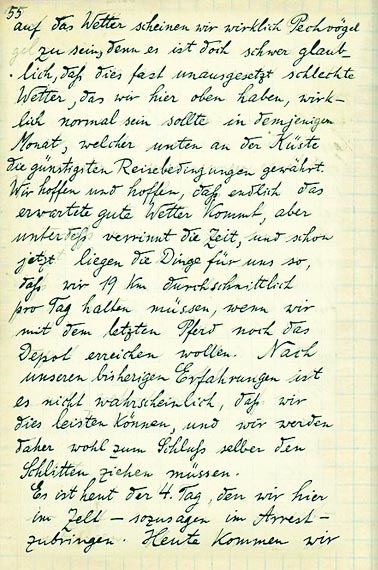 55
auf das Wetter scheinen wir wirklich Pechvögel
zu sein, denn es ist doch schwer glaub-
lich, daß dies fast unausgesetzt schlechte
Wetter, das wir hier oben haben, wirk-
lich normal sein sollte in demjenigen
Monat, welcher unten an der Küste
die günstigsten Reisebedingungen gewährt.
Wir hoffen und hoffen, daß endlich das
erwartete gute Wetter kommt, aber
unterdeß verrinnt die Zeit, und schon
jetzt liegen die Dinge für uns so,
daß wir 19 Km durchschnittlich
pro Tag halten müssen, wenn wir
mit dem letzten Pferd noch das
Depot erreichen wollen. Nach
unseren bisherigen Erfahrungen ist
es nicht wahrscheinlich, daß wir
dies leisten können, und wir werden
daher wohl zum Schluß selber den
Schlitten ziehen müssen.
Es ist heut der 4. Tag, den wir hier
im Zelt – sozusagen im Arrest –
zubringen. Heute kommen wir